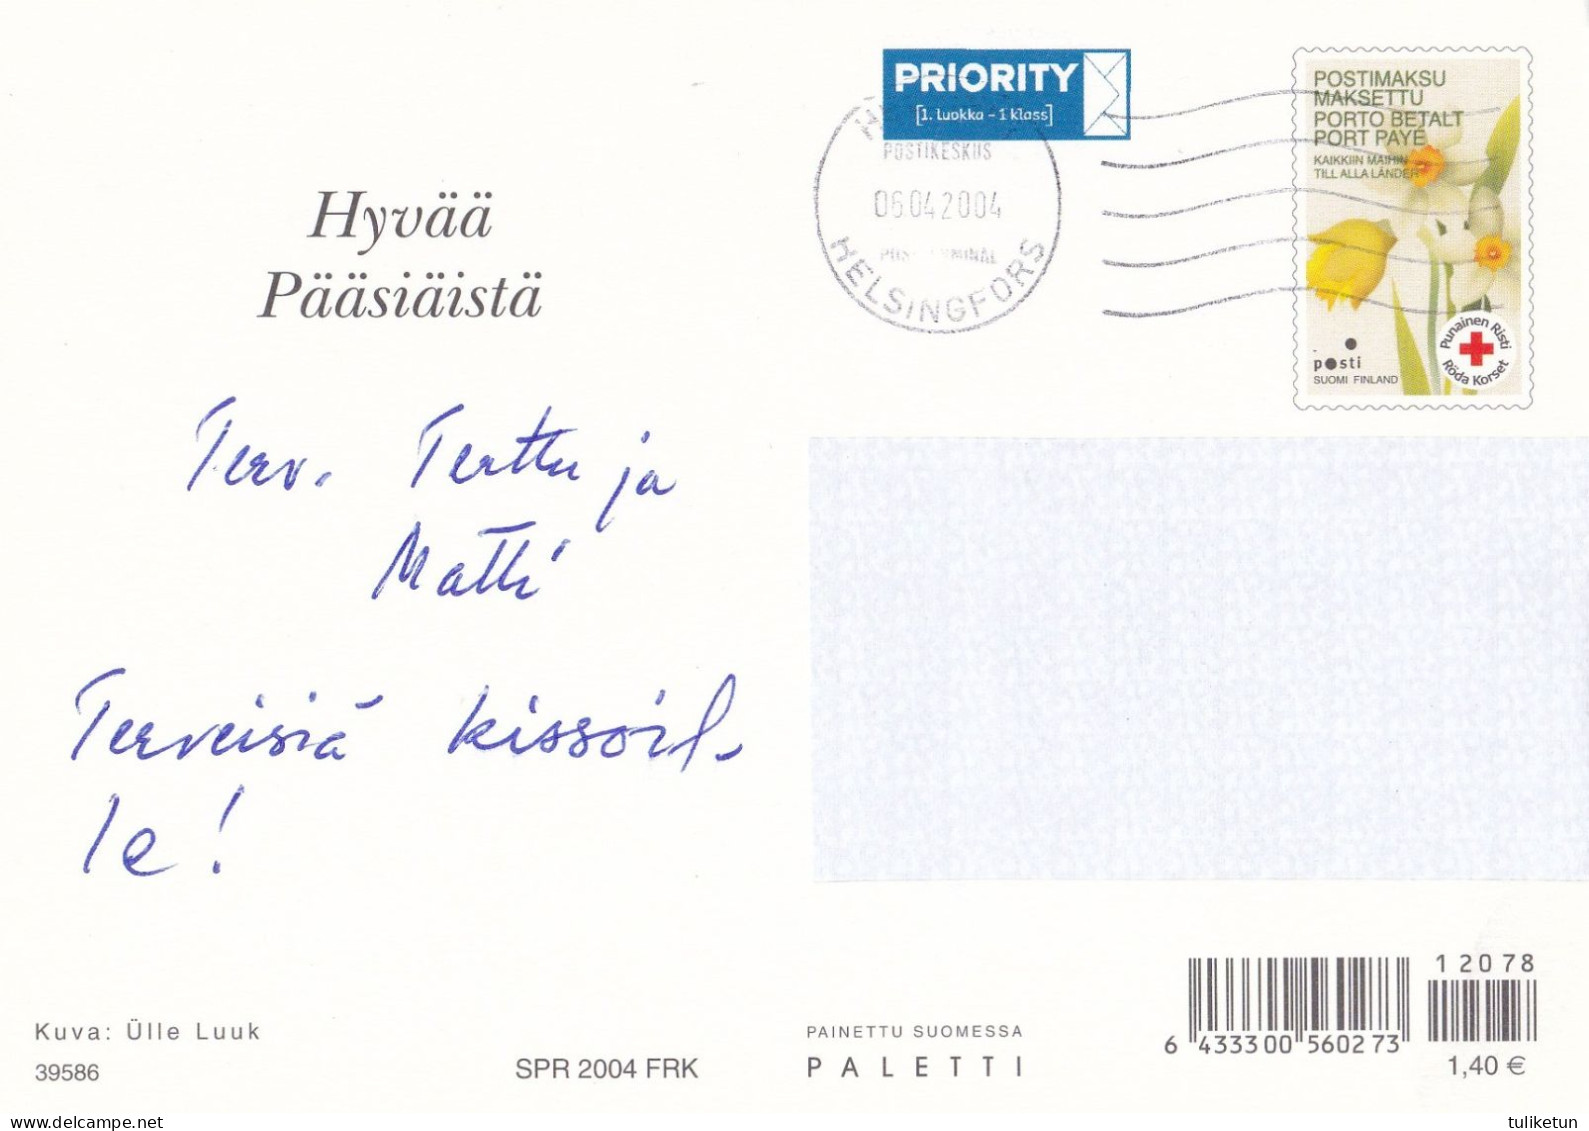 PRIORITY
[1. luokka - 1 klass]
POSTIKESKUS
06.04.2004
HELSINGFORS
POSTIMAKSU
MAKSETTU
PORTO BETALT
PORT PAYÉ
KAIKKIIN MAIHIN
TILL ALLA LÄNDER
posti
SUOMI FINLAND
Punainen Risti
Röda Korset
Hyvää
Pääsiäistä
Terv. Terttu ja
Matti
Terveisiä kissoil-
le!
Kuva: Ülle Luuk
39586
SPR 2004 FRK
PAINETTU SUOMESSA
PALETTI
12078
6 433300 560273
1,40 €
tuliketun